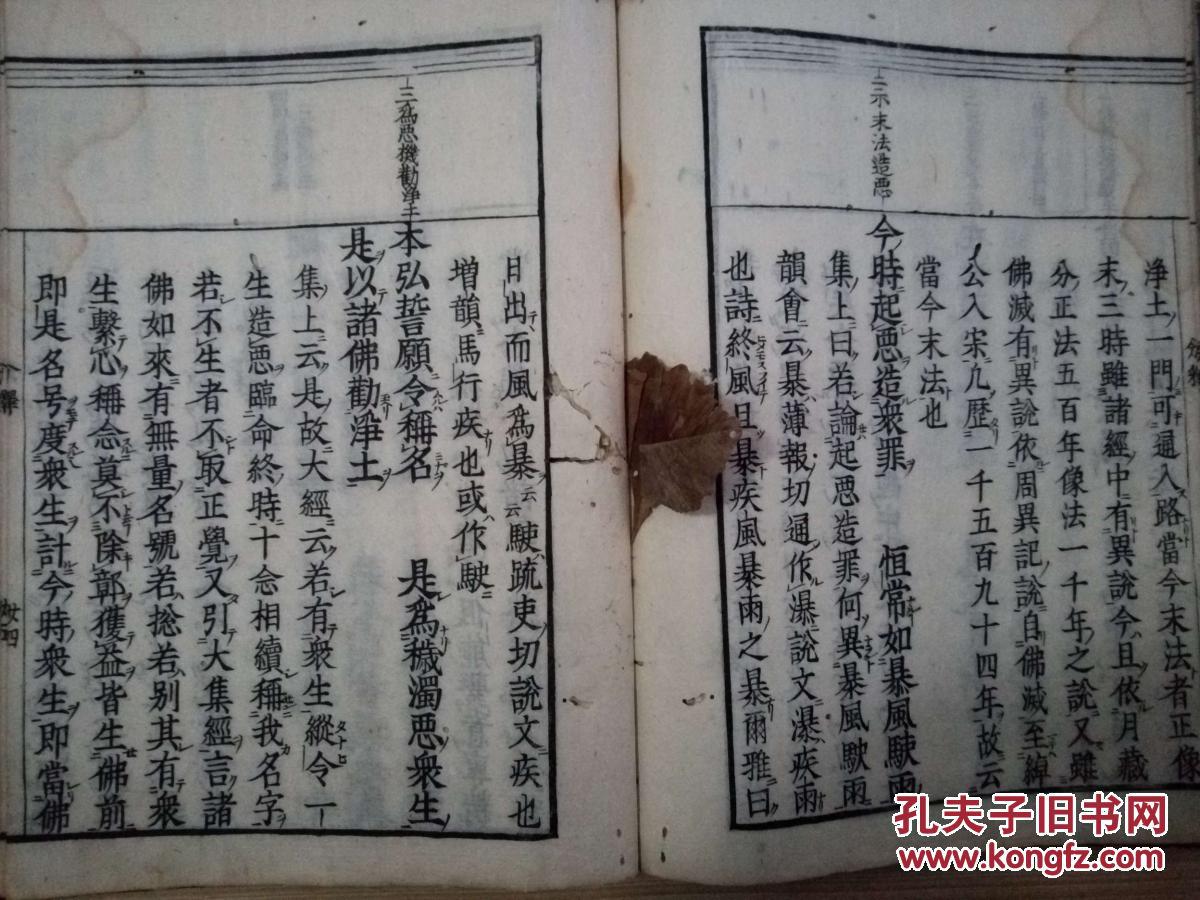 淨土一門可通入路當今末法者正像
末三時雖諸經中有異說今且依月藏
分正法五百年像法一千年之說又雖
佛滅有異說依周異記說自佛滅至綽
公入宋九歷一千五百九十四年故云
當今末法也
二示末法造惡
今時起惡造衆罪 恒常如暴風駛雨
集上曰若論起惡造罪何異暴風駛雨
韻會云暴薄報切通作瀑說文瀑疾雨
也詩終風且暴疾風暴雨之暴爾雅曰
日出而風為暴云云駛疏吏切說文疾也
增韻馬行疾也或作駛
三為惡機勸淨土
本弘誓願令稱名 是為穢濁惡衆生
是以諸佛勸淨土
集上云是故大經云若有衆生縱令一
生造惡臨命終時十念相續稱我名字
若不生者不取正覺又引大集經言諸
佛如來有無量名號若捴若別其有衆
生繫心稱念莫不除鄣獲益皆生佛前
即是名号度衆生計今時衆生即當佛
孔夫子旧书网
www.kongfz.com